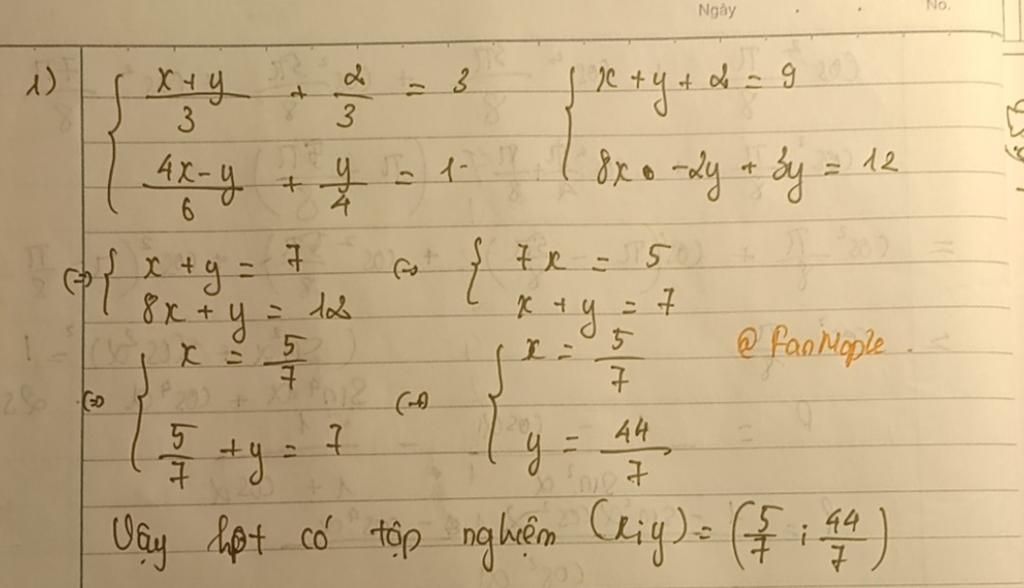 Ngày . . No.
1) { (x+y)/3 + 2/3 = 3 { x+y+2 = 9
(4x-y)/6 + y/4 = 1 8x - 2y + 3y = 12
(=) { x+y = 7 (=) { 7x = 5
8x+y = 12 x+y = 7
(=) { x = 5/7 (=) { x = 5/7
5/7 + y = 7 y = 44/7
@FanMaple
Vậy hpt có tập nghiệm (x;y) = (5/7 ; 44/7)